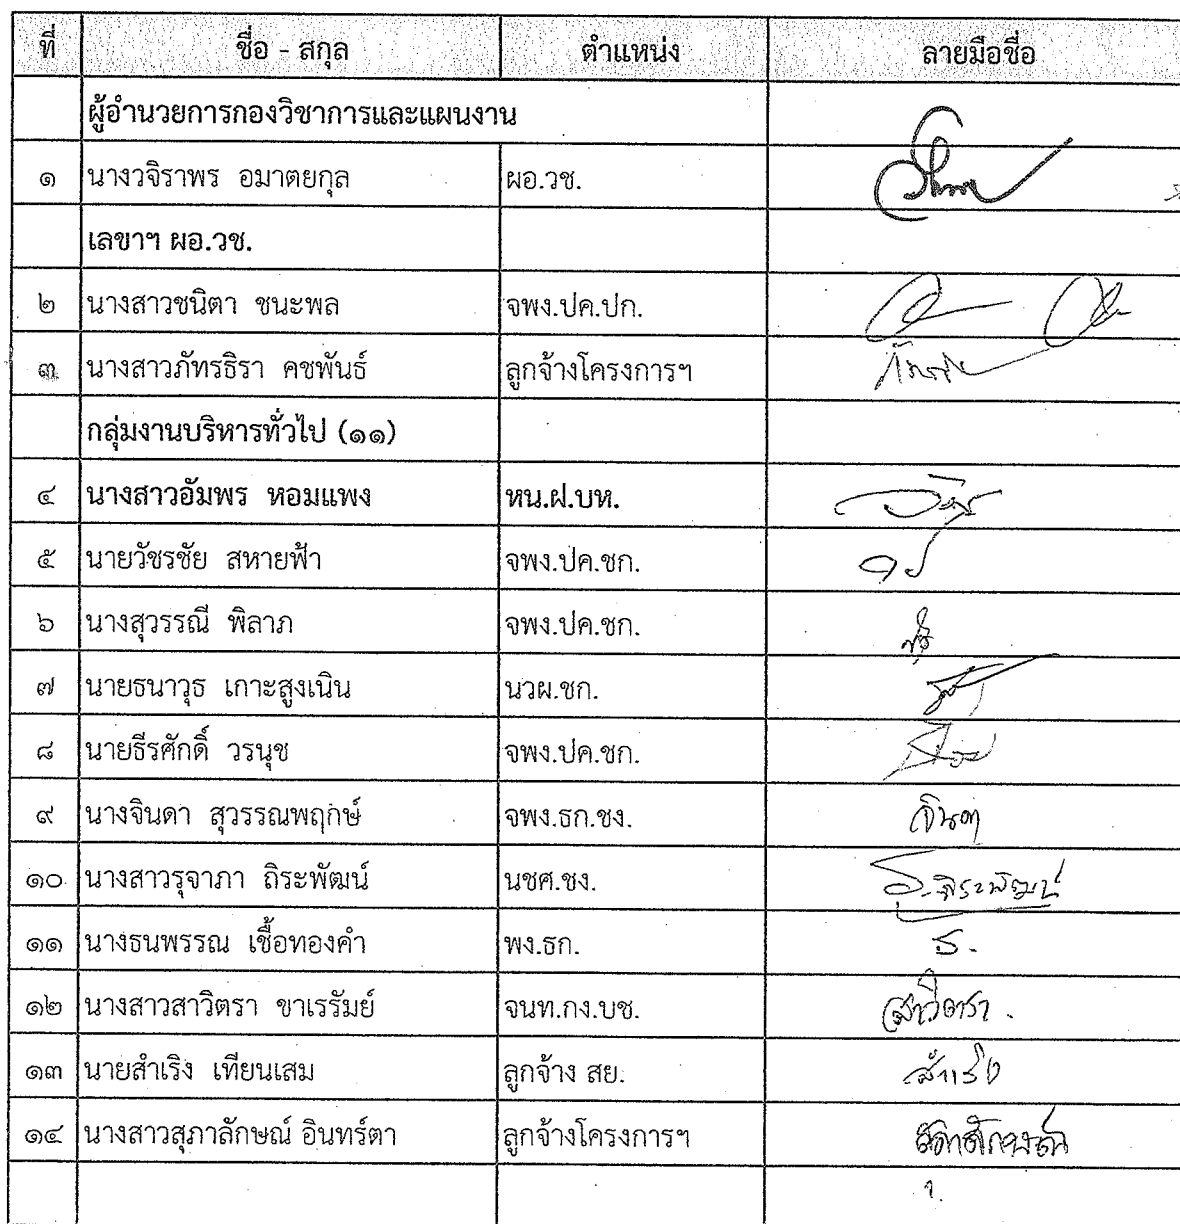 ที่ ชื่อ - สกุล ตำแหน่ง ลายมือชื่อ
ผู้อำนวยการกองวิชาการและแผนงาน
๑ นางวจิราพร อมาตยกุล ผอ.วช.
เลขาฯ ผอ.วช.
๒ นางสาวชนิตา ชนะพล จพง.ปค.ปก.
๓ นางสาวภัทรธิรา คชพันธ์ ลูกจ้างโครงการฯ
กลุ่มงานบริหารทั่วไป (๑๑)
๔ นางสาวอัมพร หอมแพง หน.ฝ.บห.
๕ นายวัชรชัย สหายฟ้า จพง.ปค.ชก.
๖ นางสุวรรณี พิลาภ จพง.ปค.ชก.
๗ นายธนาวุธ เกาะสูงเนิน นวผ.ชก.
๘ นายธีรศักดิ์ วรนุช จพง.ปค.ชก.
๙ นางจินดา สุวรรณพฤกษ์ จพง.ธก.ชง. จินดา
๑๐ นางสาวรุจาภา ถิระพัฒน์ นชศ.ชง. ถิระพัฒน์
๑๑ นางธนพรรณ เชื้อทองคำ พง.ธก. ธ.
๑๒ นางสาวสาวิตรา ขาเรรัมย์ จนท.กง.บช. สาวิตรา
๑๓ นายสำเริง เทียนเสม ลูกจ้าง สย. สำเริง
๑๔ นางสาวสุภาลักษณ์ อินทร์ตา ลูกจ้างโครงการฯ